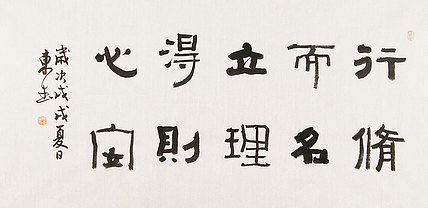 行脩
而名
立理
得則
心安
歲次戊戌夏日
東